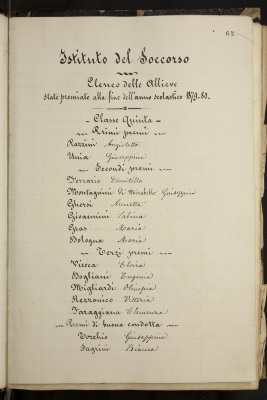 68
Istituto del Soccorso
Elenco delle Allieve
state premiate alla fine dell'anno scolastico 1879-80.
- Classe Quinta -
Primi premi
Razzini Angioletta
Unia Giuseppina
Secondi premi
Ferrario Domitilla
Montagnini di Mirabello Giuseppina
Ghersi Annetta
Giovannini Sabina
Gras Maria
Bologna Maria
Terzi premi
Vicca Clovia
Bogliani Eugenia
Migliardi Olimpia
Rezzonico Vittoria
Faraggiana Clemenza
Premi di buona condotta
Torchio Giuseppina
Bianca